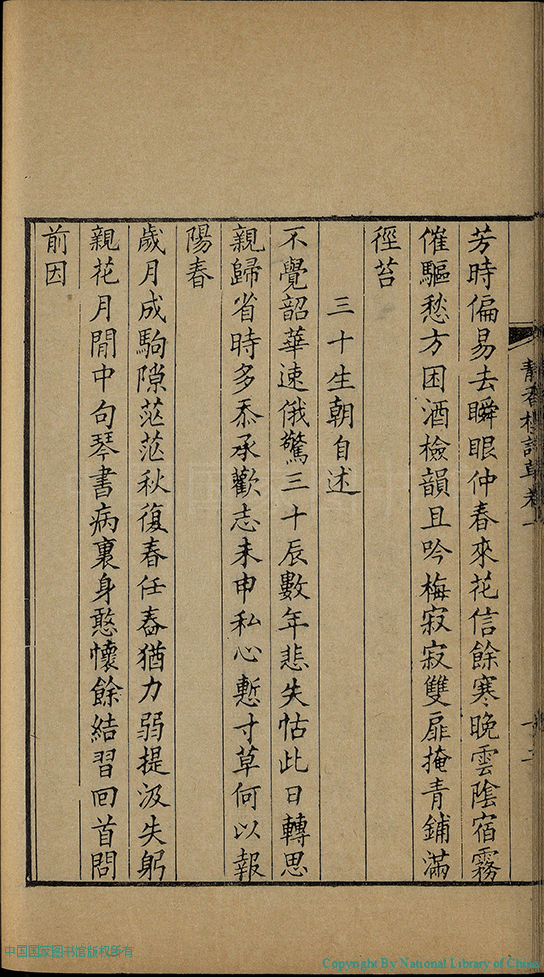 芳時偏易去瞬眼仲春來花信餘寒晚雲陰宿霧
催驅愁方困酒檢韻且吟梅寂寂雙扉掩青鋪滿
徑苔
三十生朝自述
不覺韶華速俄驚三十辰數年悲失怙此日轉思
親歸省時多忝承歡志未申私心慙寸草何以報
陽春
歲月成駒隙茫茫秋復春任舂猶力弱提汲失躬
親花月閒中句琴書病裏身憨懷餘結習回首問
前因
中国国家图书馆版权所有
Copyright By National Library of China